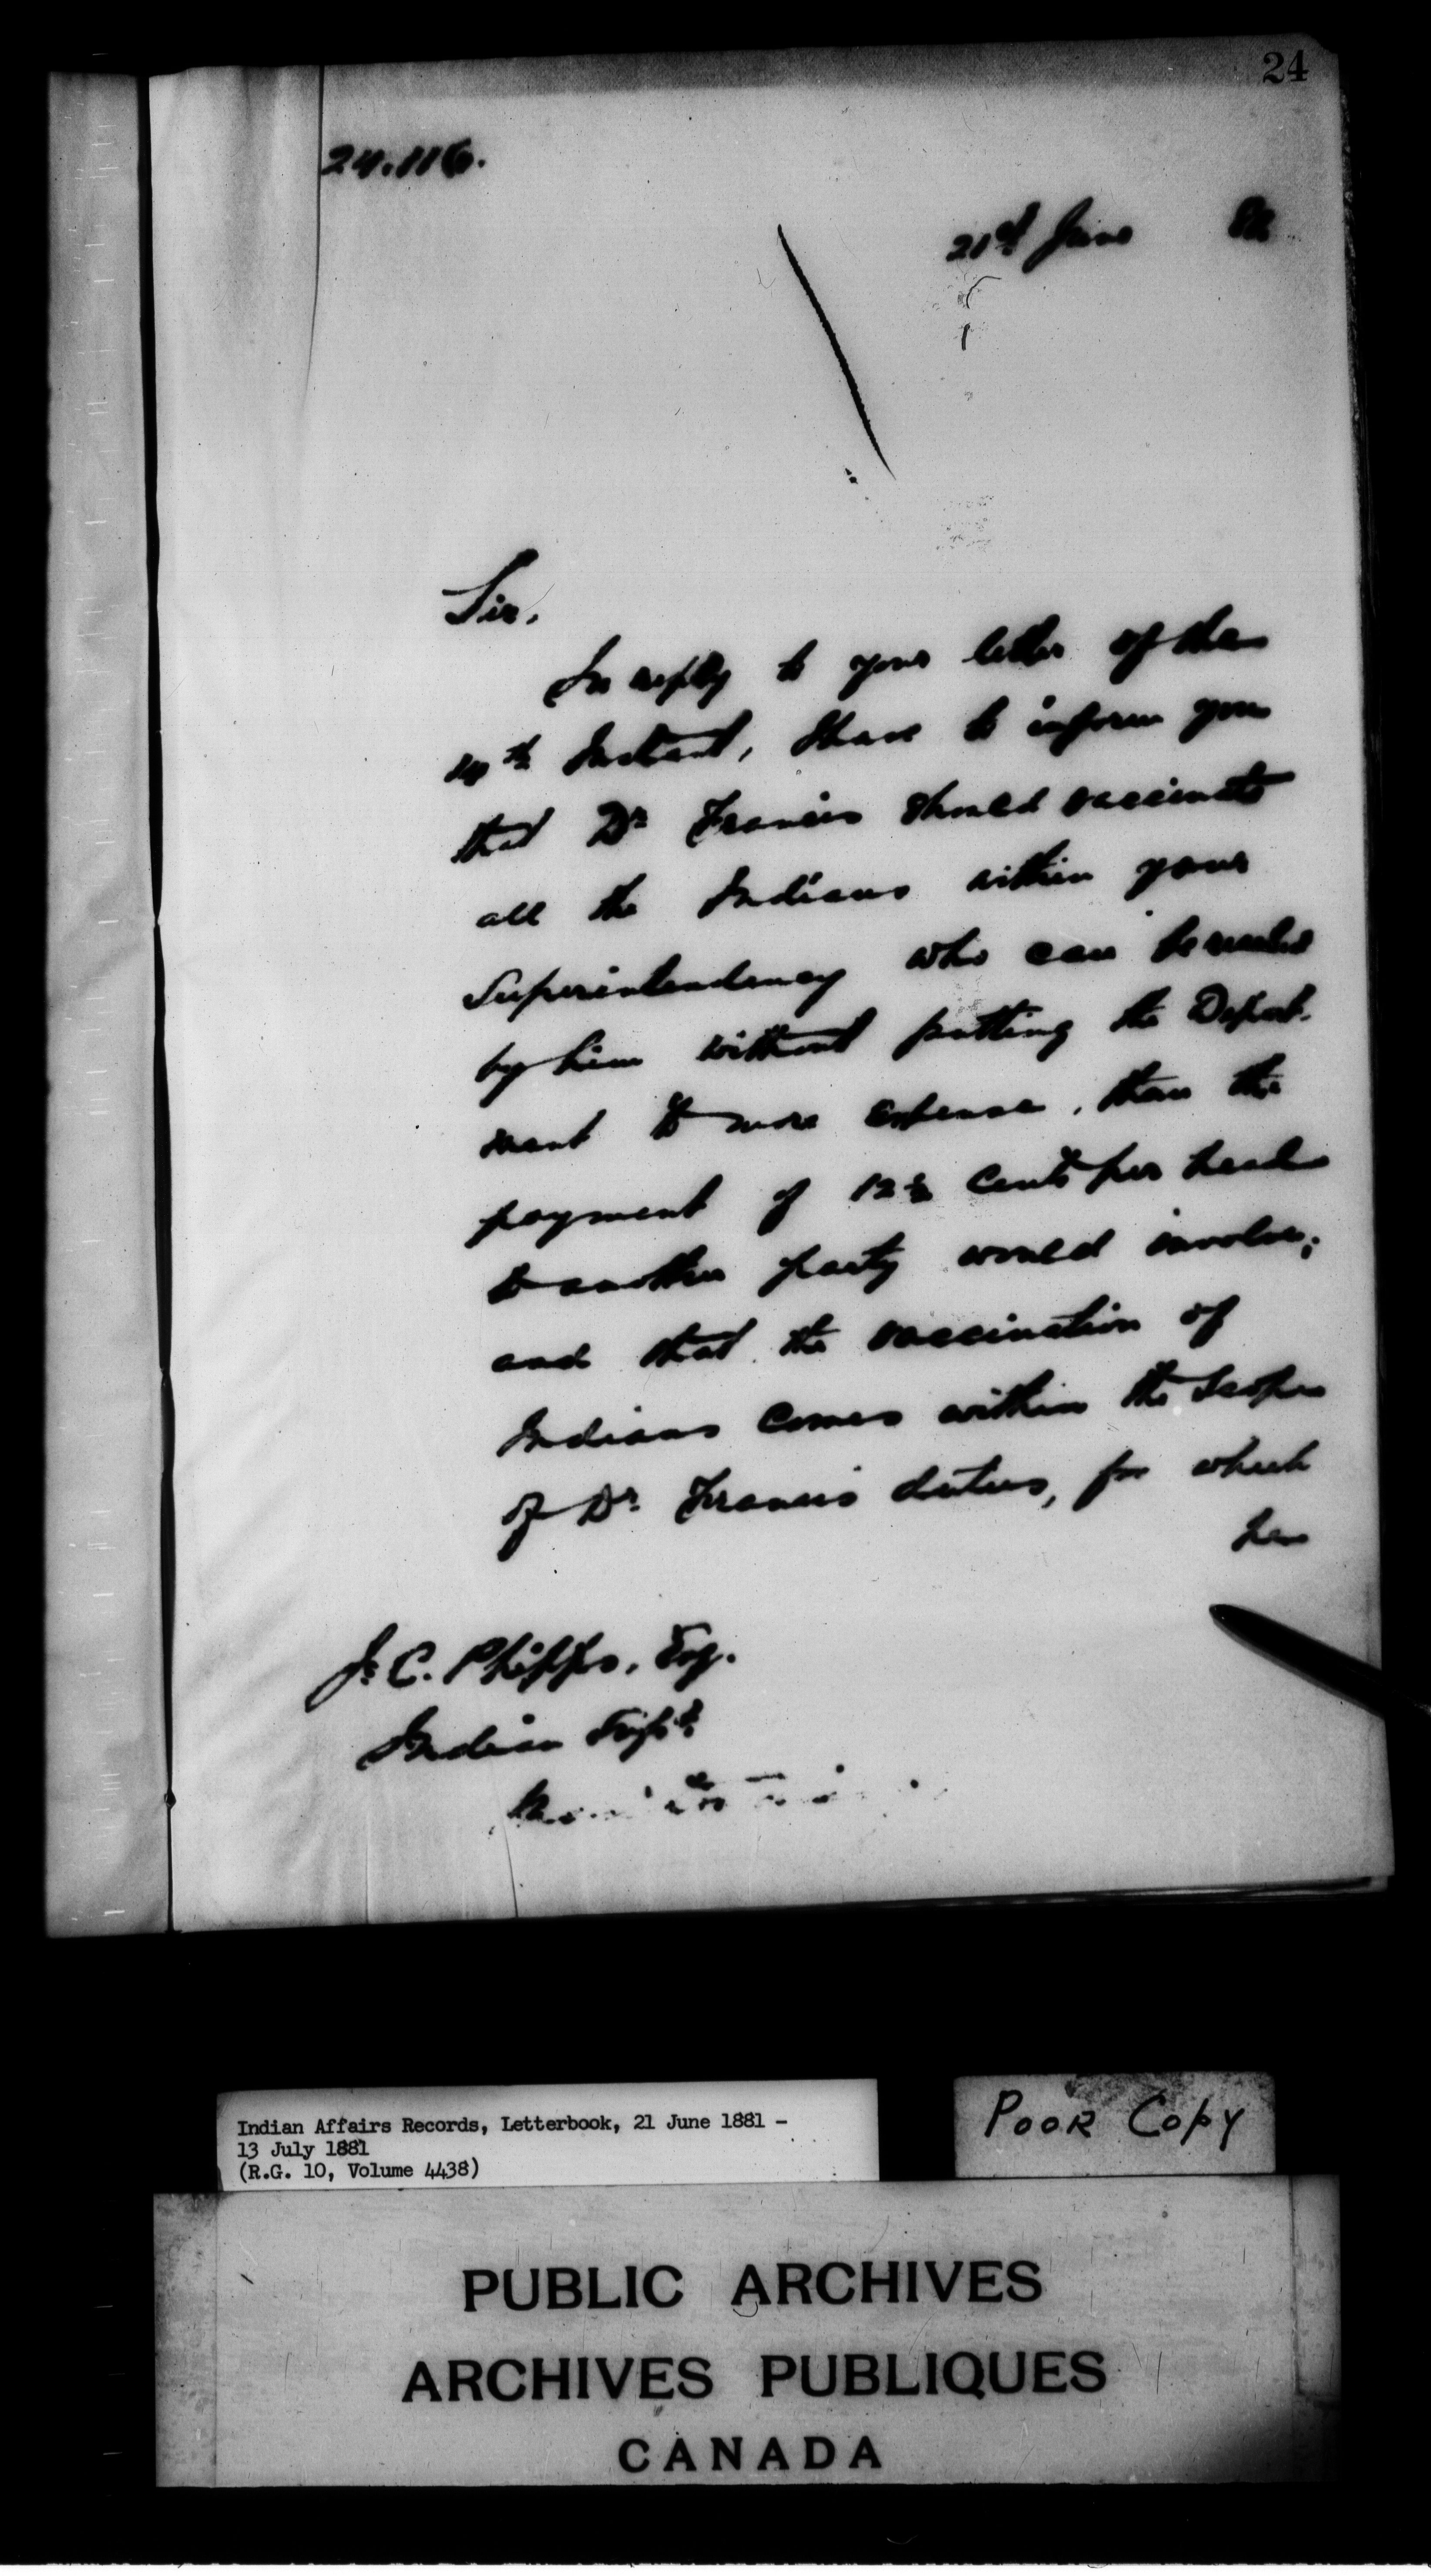 24
24.116.
21st June 81
Sir,
In reply to your letter of the
14th Instant, I have to inform you
that Dr Francis should vaccinate
all the Indians within your
Superintendency who can be reached
by him without putting the Depart-
ment to more expense, than the
payment of 12½ Cents per head
to another party would involve;
and that the vaccination of
Indians comes within the Scope
of Dr. Francis duties, for which
he
J. C. Phipps, Esq.
Indian Supt.
Indian Affairs Records, Letterbook, 21 June 1881 -
13 July 1881
(R.G. 10, Volume 4438)
POOR COPY
PUBLIC ARCHIVES
ARCHIVES PUBLIQUES
CANADA